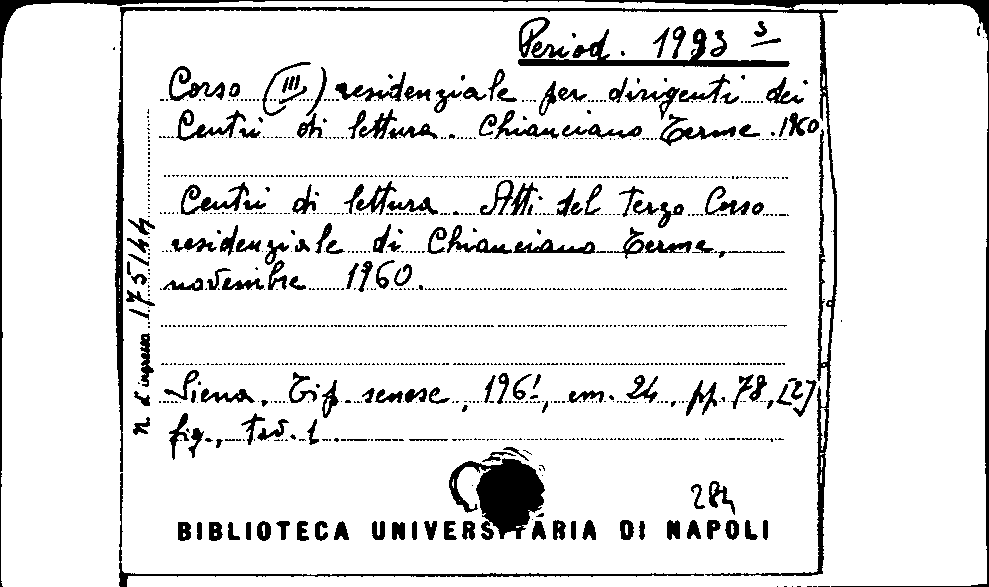 Period. 1993 s
Corso (III) residenziale per dirigenti dei
Centri di lettura. Chianciano Terme. 1960
Centri di lettura. Atti del Terzo Corso
residenziale di Chianciano Terme,
novembre 1960.
Siena, Tip. senese, 1961, cm. 24, pp. 78, [2]
fig., tav. 1.
N. d'ingresso 175144
284
BIBLIOTECA UNIVERSITARIA DI NAPOLI